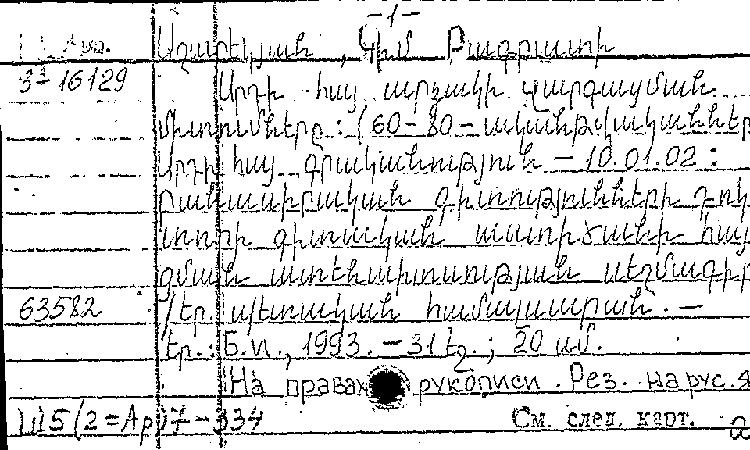 -1-
Арм. Աղաբեկյան, Կիմ Բագրատի
3-16129 Արդի հայ արձակի զարգացման
միտումները: (60-80-ականթվականներ
Արդի հայ գրականություն - 10.01.02:
բանասիրական գիտությունների դոկ
տորի գիտական աստիճանի հայց
ման ատենախոսության սեղմագիր
63582 /Եր. պետական համալսարան. -
Եր.: Б.и., 1993. - 31 էջ.; 20 սմ.
На правах рукописи. Рез. на рус. я
Ш5(2=Ар)7-334 См. след. карт.